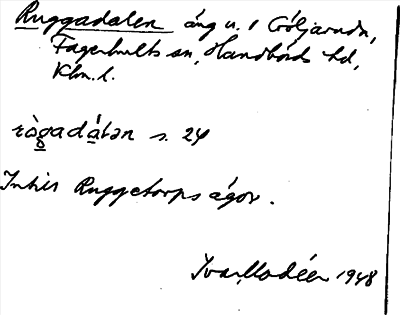 Ruggadalen äng u. 1 Göljarudn,
Fagerhults sn, Handbörds hd,
Klm. l.
rògadátən s. 24
Intill Ruggetorps ägor.
Ivar Modéer 1948